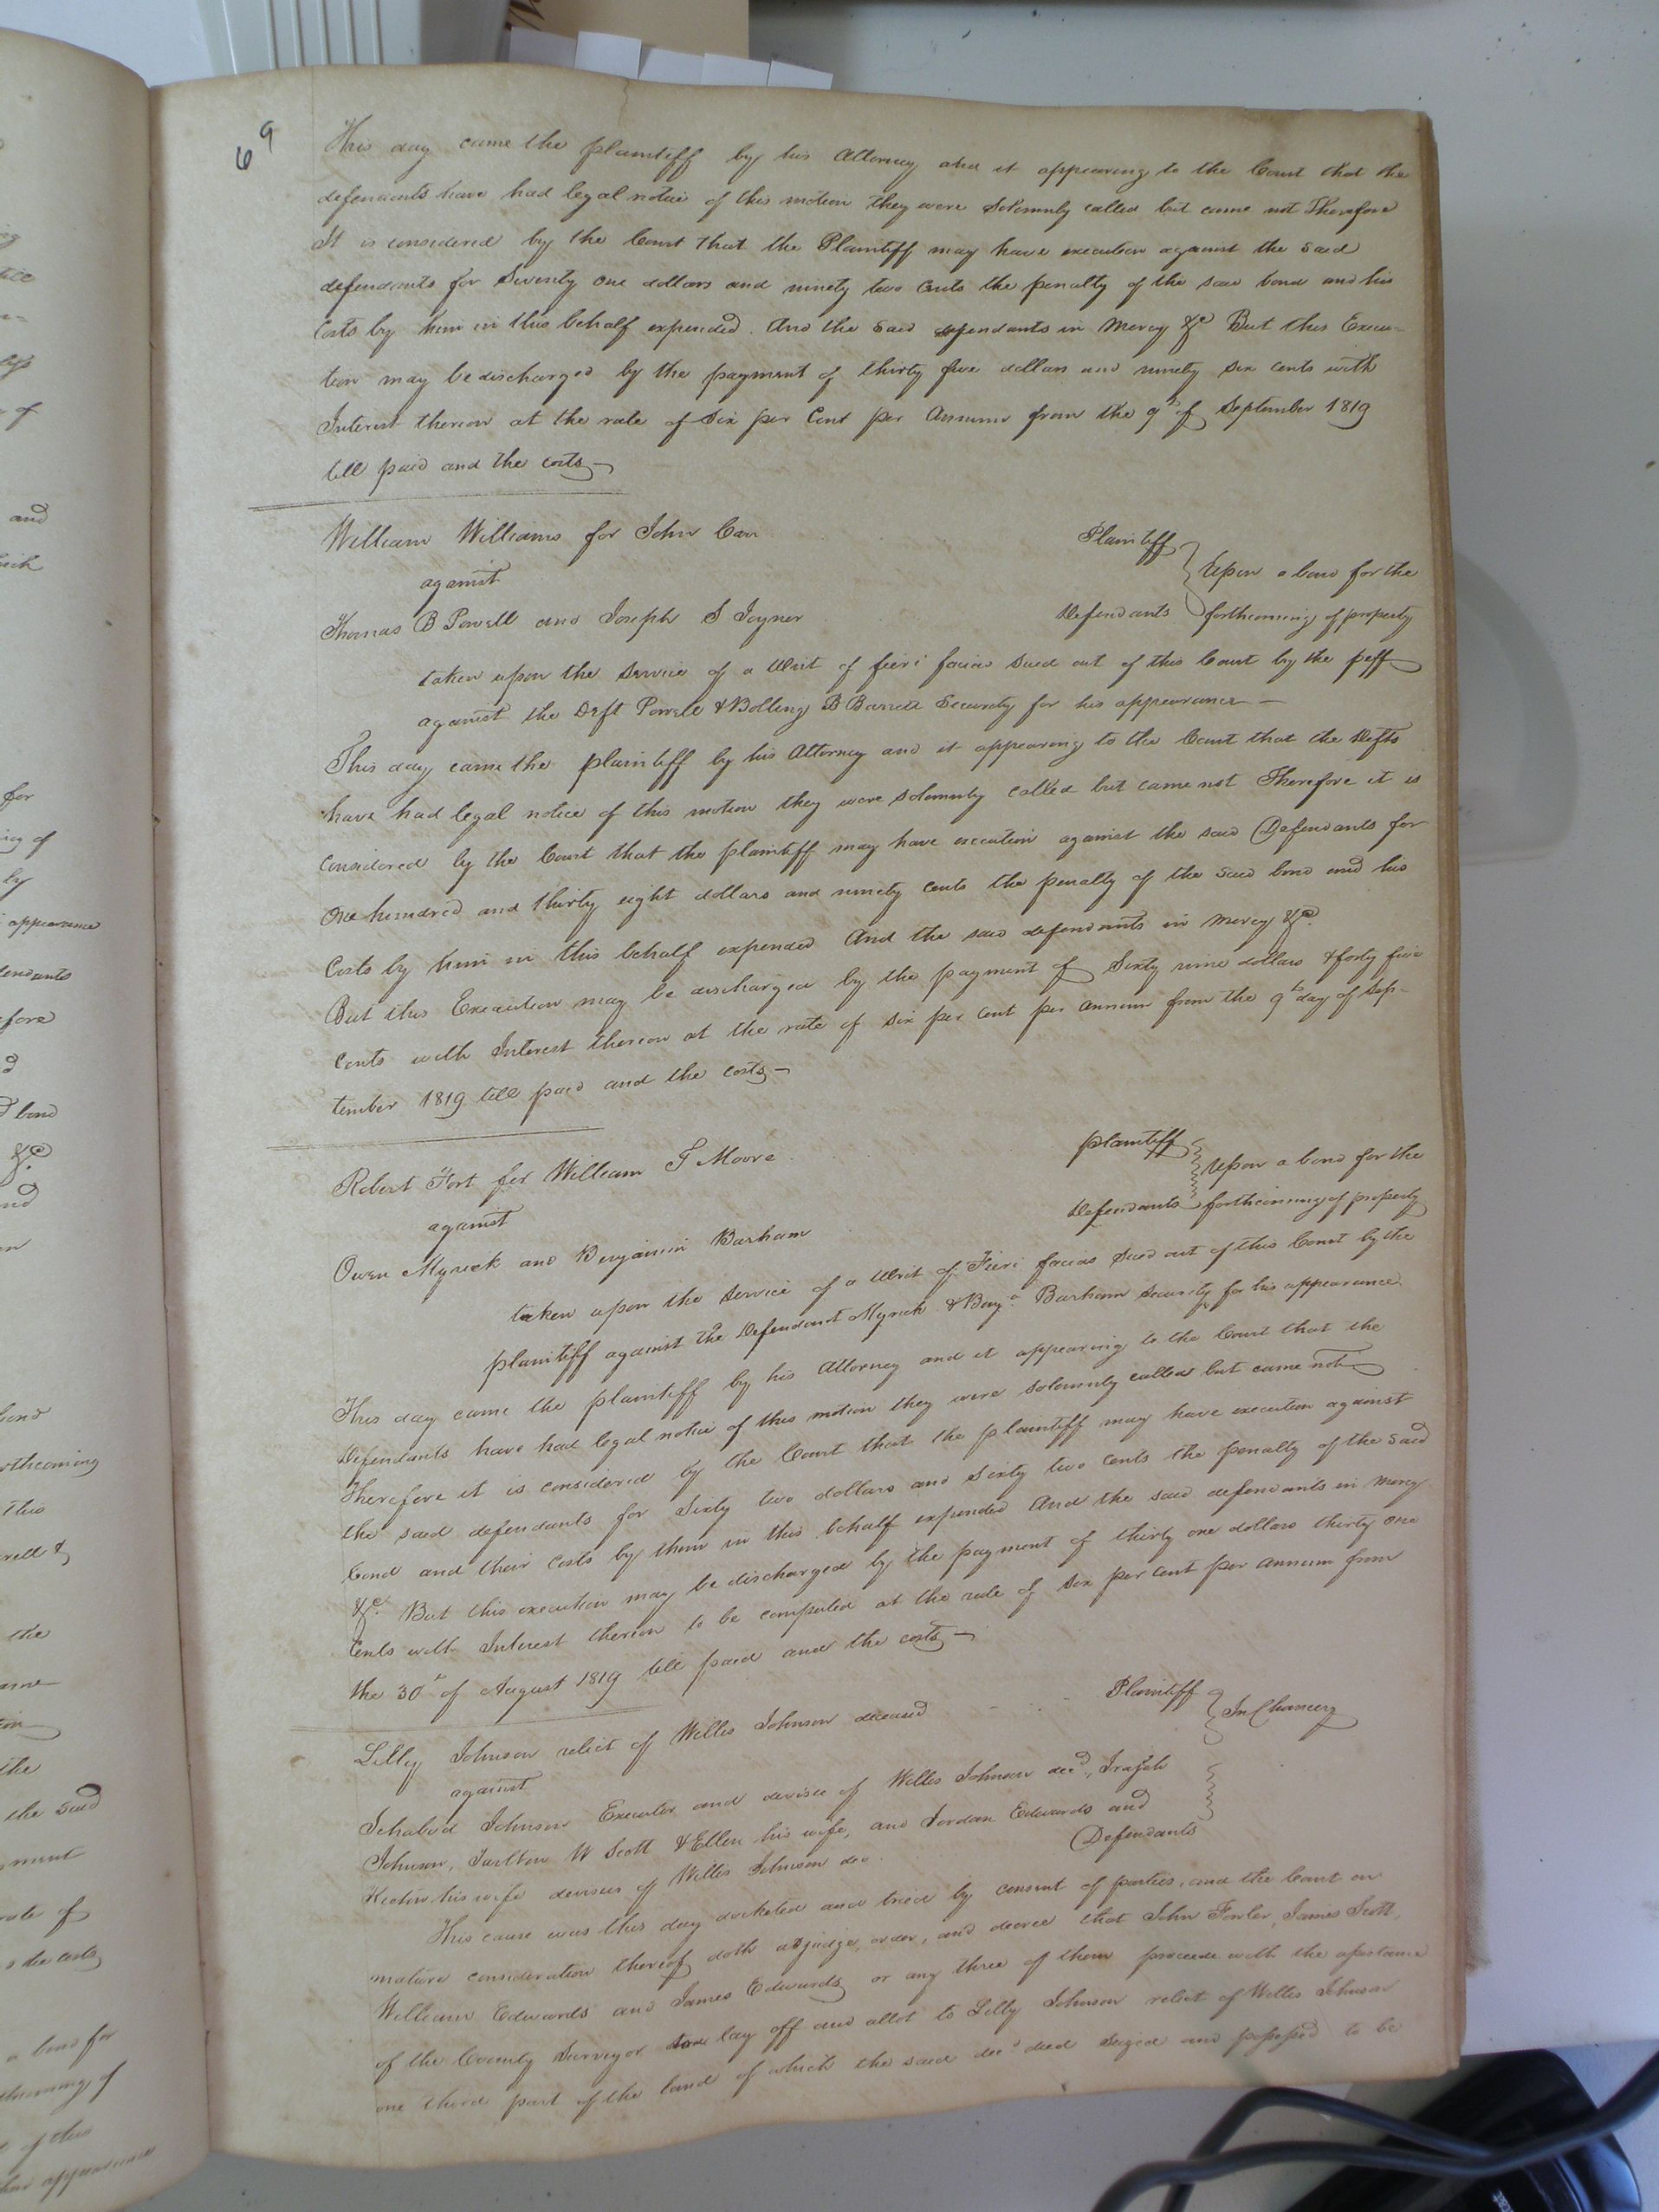 69
This day came the plaintiff by his Attorney and it appearing to the Court that the
defendants have had legal notice of this motion they were Solemnly called but came not Therefore
It is considered by the Court that the Plaintiff may have execution against the said
defendants for Seventy one dollars and ninety two Cents the penalty of the said bond and his
Costs by him in this behalf expended. And the said defendants in Mercy &c But this Execu-
tion may be discharged by the payment of thirty five dollars and ninety six cents with
Interest thereon at the rate of Six per Cent per Annum from the 9th of September 1819
till paid and the costs
William Williams for John Carr
Plaintiff
against
Upon a bond for the
Thomas B Powell and Joseph S Joyner
Defendants
forthcoming of property
taken upon the Service of a Writ of fieri facias Sued out of this Court by the peff
against the Deft Powell & Bolling B Barrett Security for his appearance
This day came the plaintiff by his Attorney and it appearing to the Court that the Defts
have had legal notice of this motion they were solemnly called but came not Therefore it is
Considered by the Court that the plaintiff may have execution against the said Defendants for
One hundred and thirty eight dollars and ninety cents the penalty of the said bond and his
Costs by him in this behalf expended And the said defendants in mercy &c.
But this Execution may be discharged by the payment of Sixty nine dollars & forty five
Cents with Interest thereon at the rate of six per cent per annum from the 9th day of Sep-
tember 1819 till paid and the costs
Robert Fort for William T Moore
plaintiff
against
Upon a bond for the
Owen Myrick and Benjamin Barham
Defendants
forthcoming of property
taken upon the Service of a Writ of Fieri facias Sued out of this Court by the
plaintiff against the Defendant Myrick & Benja Barham Security for his appearance
This day came the plaintiff by his Attorney and it appearing to the Court that the
Defendants have had legal notice of this motion they were solemnly called but came not
Therefore it is considered by the Court that the plaintiff may have execution against
the said defendants for Sixty two dollars and Sixty two cents the penalty of the said
bond and their Costs by them in this behalf expended And the said defendants in mercy
&c. But this execution may be discharged by the payment of thirty one dollars thirty one
Cents with Interest thereon to be computed at the rate of six per cent per annum from
the 30th of August 1819 till paid and the costs
Lilley Johnson relict of Willis Johnson deceased
Plaintiff
In Chancery
against
Ichabod Johnson Executor and devisee of Willis Johnson decd,
Johnson, Tarlton W Scott & Ellen his wife, and Jordan Edwards and
his wife devisees of Willis Johnson dec
Defendants
This cause was this day docketed and tried by consent of parties, and the Court on
mature consideration thereof doth adjudge, order, and decree that John Fowler, James Scott,
William Edwards and James Edwards or any three of them proceede with the
of the County Surveyor lay off and allot to Lilly Johnson relict of Willis Johnson
one third part of the land of which the said decd died Seized and possessed to be